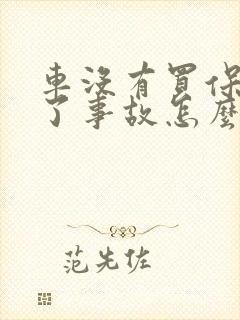 車沒有買保
了事故怎麼
范先佐